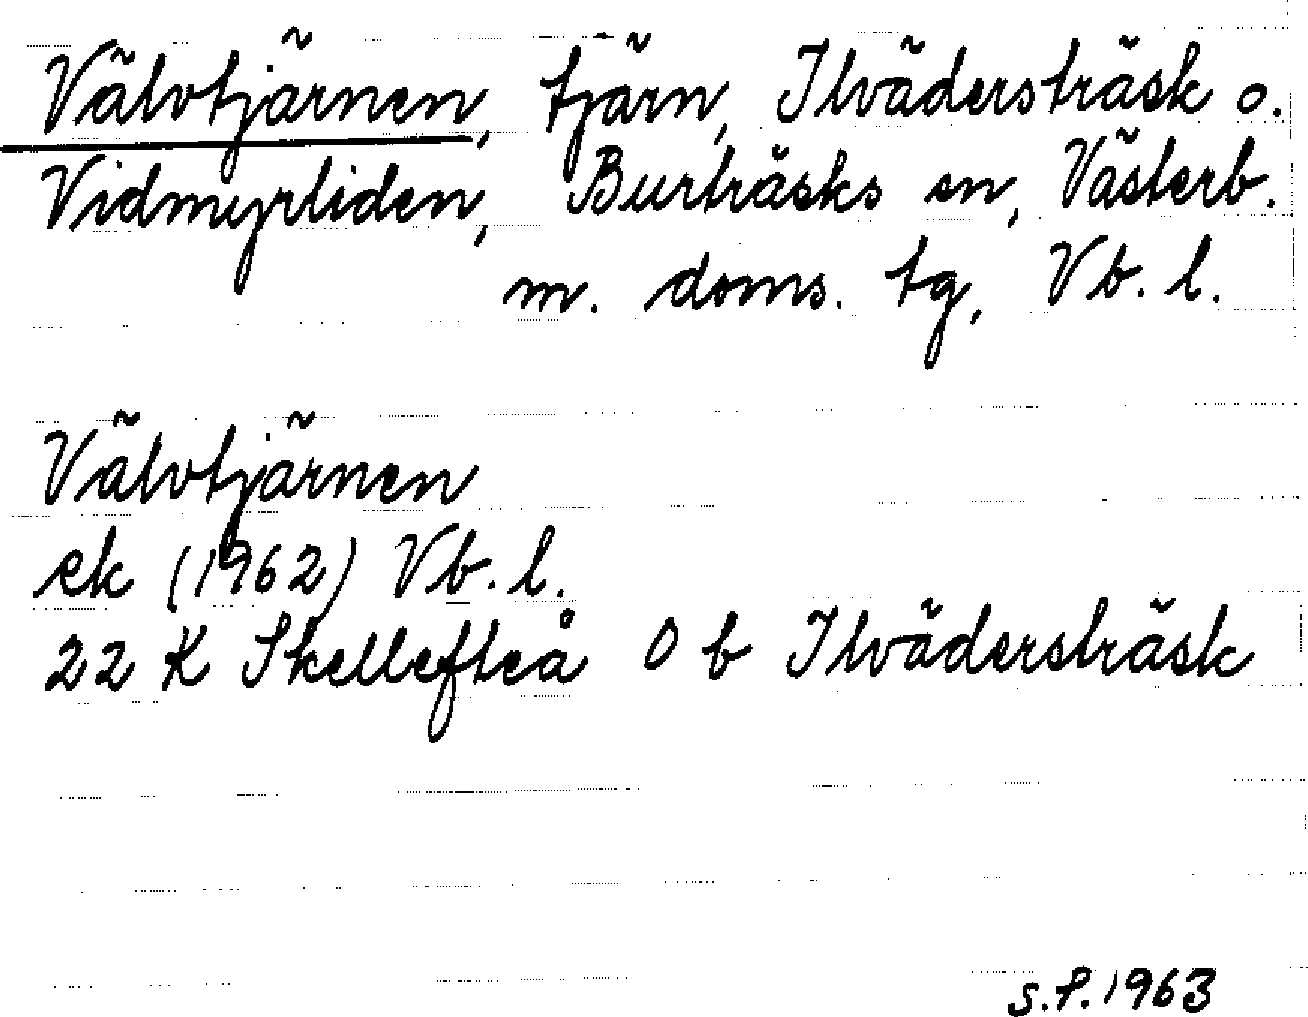 Välvtjärnen, tjärn, Ilvädersträsk o.
Vidmyrliden, Burträsks sn, Västerb.
m. doms. tg, Vb. l.
Välvtjärnen
ek (1962) Vb. l.
22 K Skellefteå 0 b Ilvädersträsk
S.P. 1963